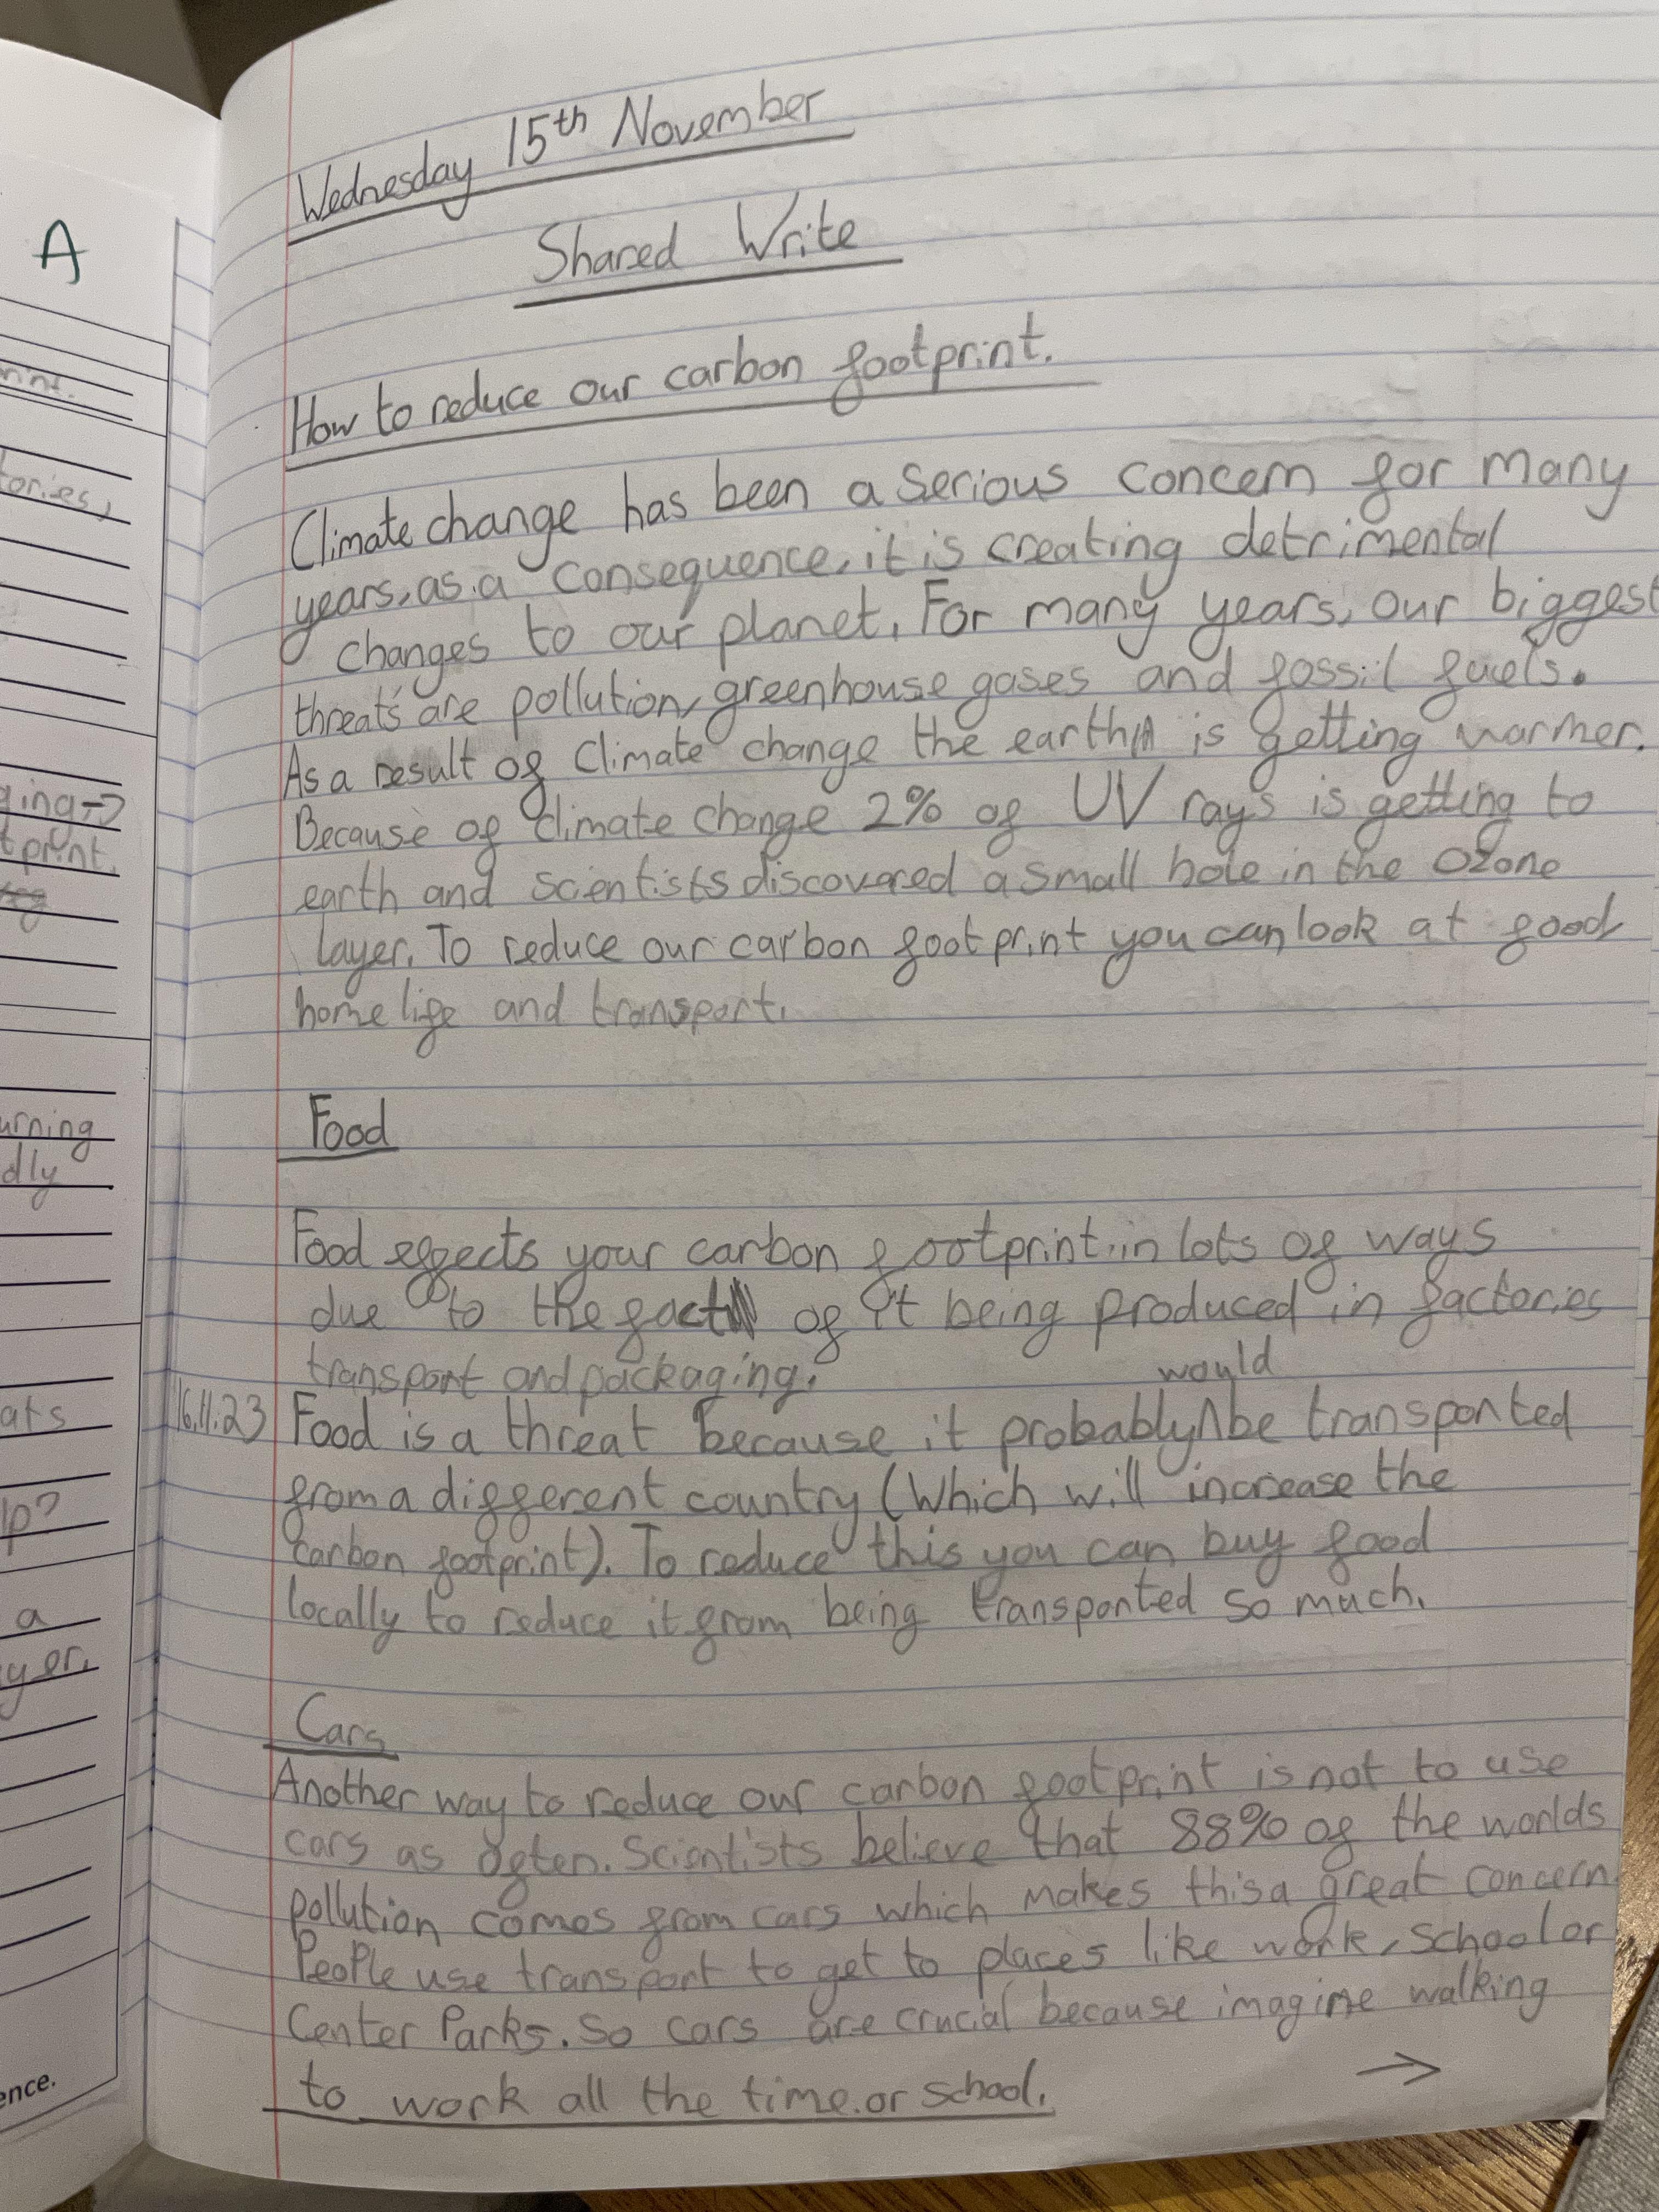 A
Wednesday 15th November
Shared Write
How to reduce our carbon footprint.
Climate change has been a serious concern for many
years, as a consequence, it is creating detrimental
changes to our planet. For many years, our biggest
threats are pollution, greenhouse gases and fossil fuels.
As a result of climate change the earth is getting warmer.
Because of climate change 2% of UV rays is getting to
earth and scientists discovered a small hole in the ozone
layer. To reduce our carbon footprint you can look at food
home life and transport.
Food
Food effects your carbon footprint in lots of ways
due to the fact of it being produced in factories
transport and packaging.
would
16.11.23 Food is a threat because it probably^be transported
from a different country (Which will increase the
carbon footprint). To reduce this you can buy food
locally to reduce it from being transported so much.
Cars
Another way to reduce our carbon footprint is not to use
cars as often. Scientists believe that 88% of the worlds
pollution comes from cars which makes this a great concern
People use transport to get to places like work, school or
Center Parks. So cars are crucial because imagine walking
to work all the time or school.
→
print.
tories,
ging→
tprint.
urning
dly
ats
lp?
a
yer.
ence.